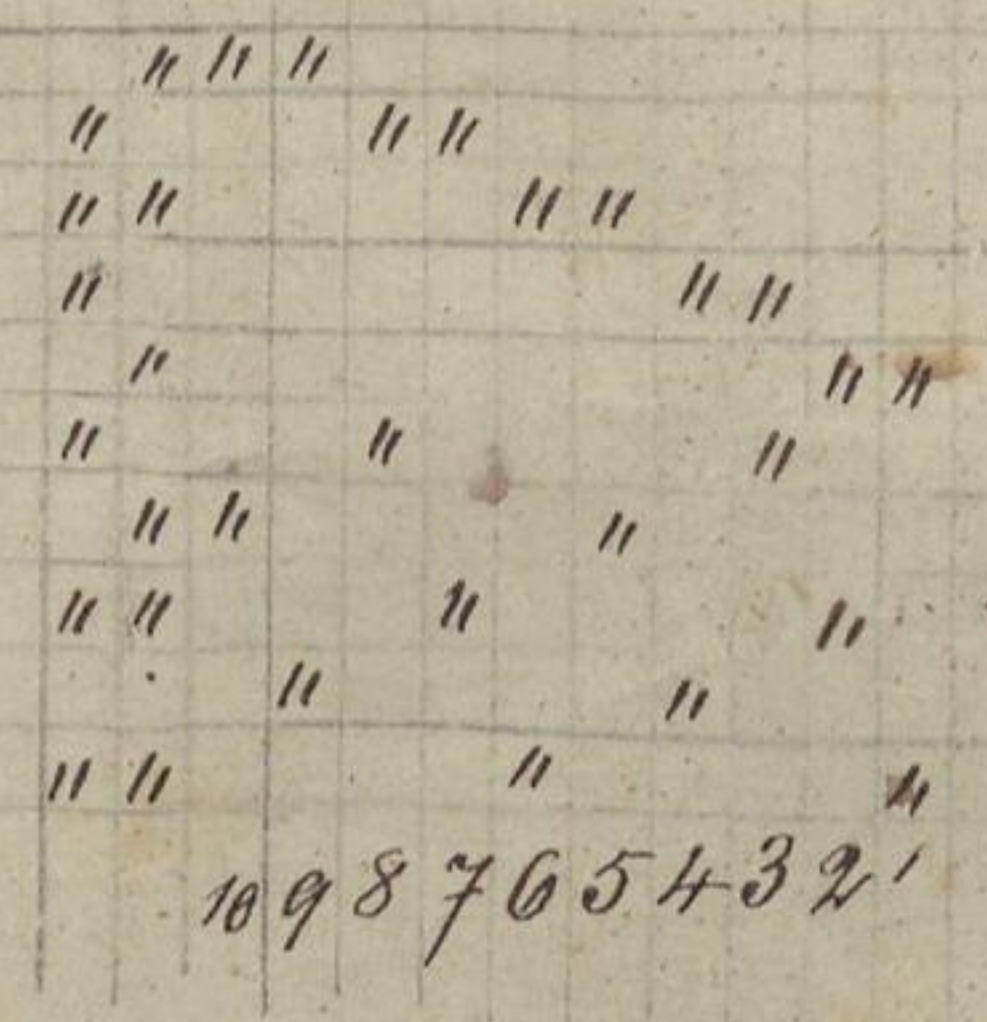 〃 〃 〃
〃 〃 〃
〃 〃 〃 〃
〃 〃 〃
〃 〃 〃
〃 〃 〃
〃 〃 〃
〃 〃 〃 〃
〃 〃
〃 〃 〃 〃
10 9 8 7 6 5 4 3 2 1